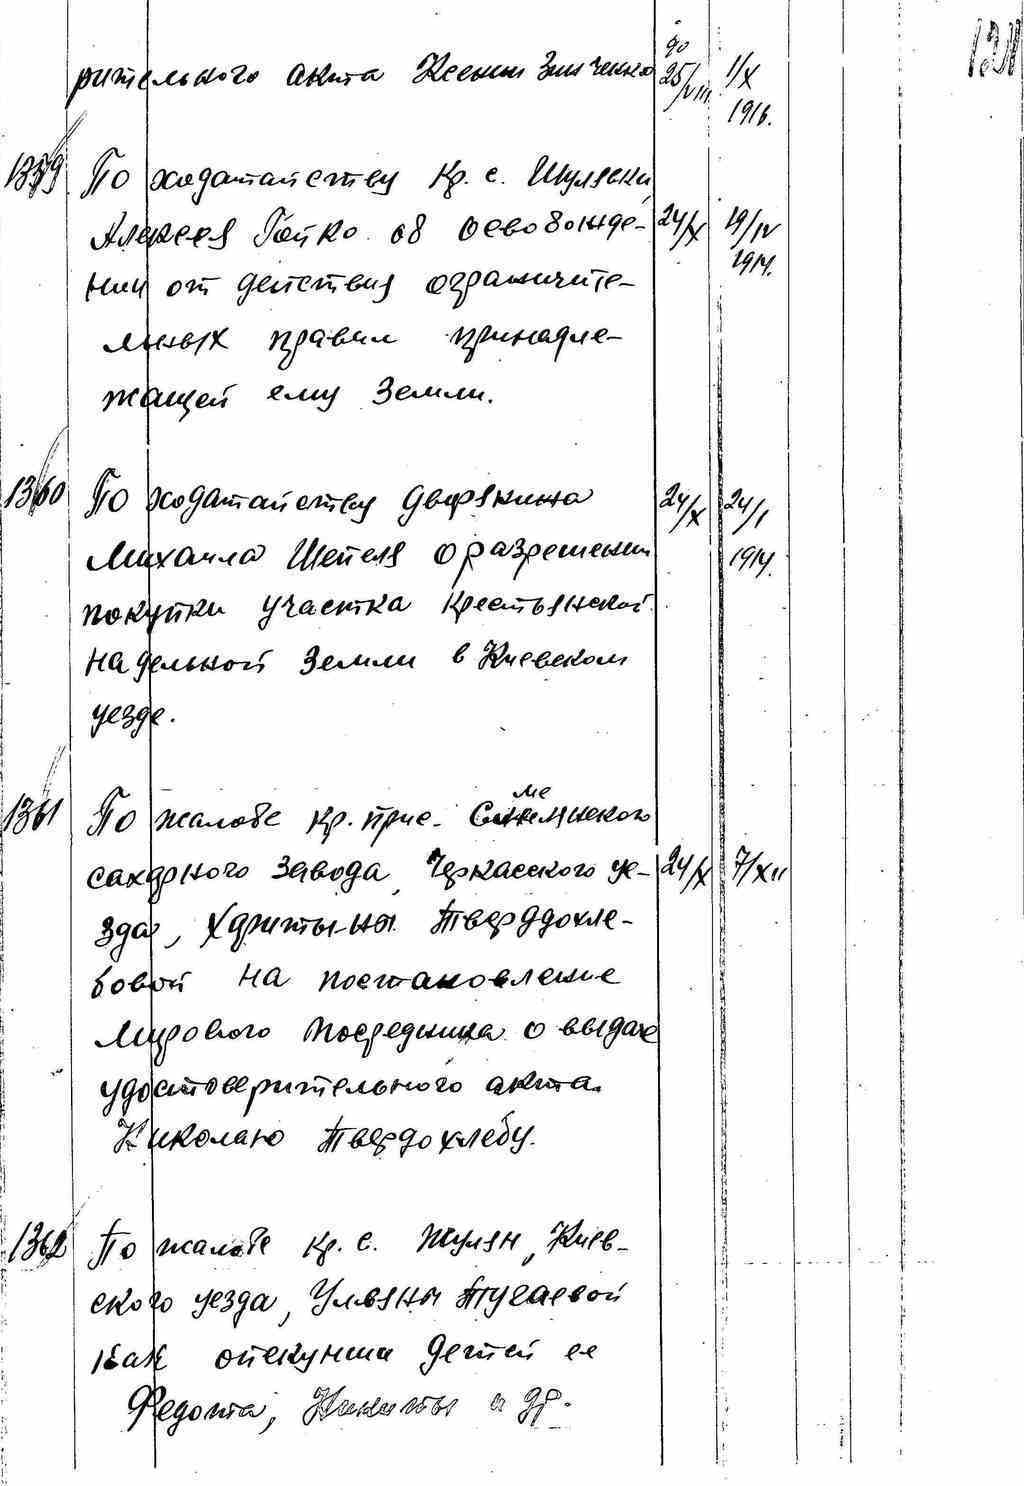 131
рительного акта Ксении Зинченко до 25/VIII 1/X 1916.
1359 По ходатайству Кр. с. Шулявки
Алексея Гойко об освобожде- 24/X 19/IV 1914.
нии от действия ограничите-
льных правил принадле-
жащей ему земли.
1360 По ходатайству дворянина 24/X 24/I 1914.
Михаила Шепеля о разрешении
покупки участка крестьянской
надельной земли в Киевском
уезде.
1361 По жалобе кр. прис.
сахарного завода, Черкасского уе- 24/X 7/XII
зда, Харитыны Твердохле-
бовой на постановление
Мирового Посредника о выдаче
удостоверительного акта
Николаю Твердохлебу.
1362 По жалобе кр. с. Жулян, Киев-
ского уезда, Ульяны Тугаевой
как опекунши детей ее
Федота, Никиты и др.